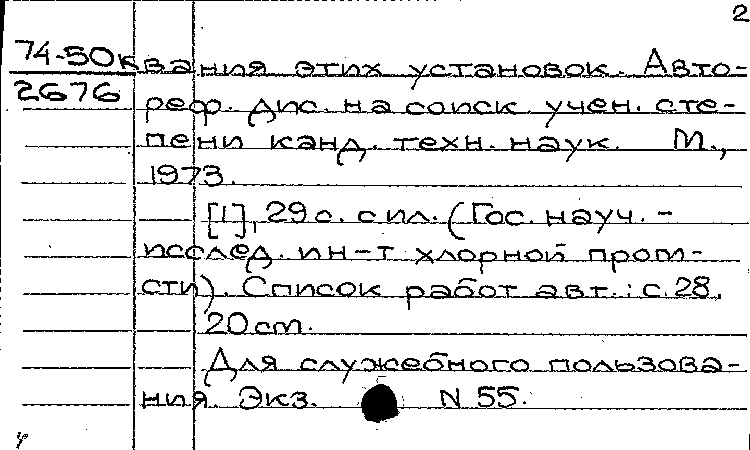 2
74-50к вания этих установок. Авто-
2676 реф. дис. на соиск. учен. сте-
пени канд. техн. наук. М.,
1973.
[1], 29 с. с ил. (Гос. науч.-
исслед. ин-т хлорной пром-
сти). Список работ авт.: с. 28.
20 см.
Для служебного пользова-
ния. Экз. N 55.